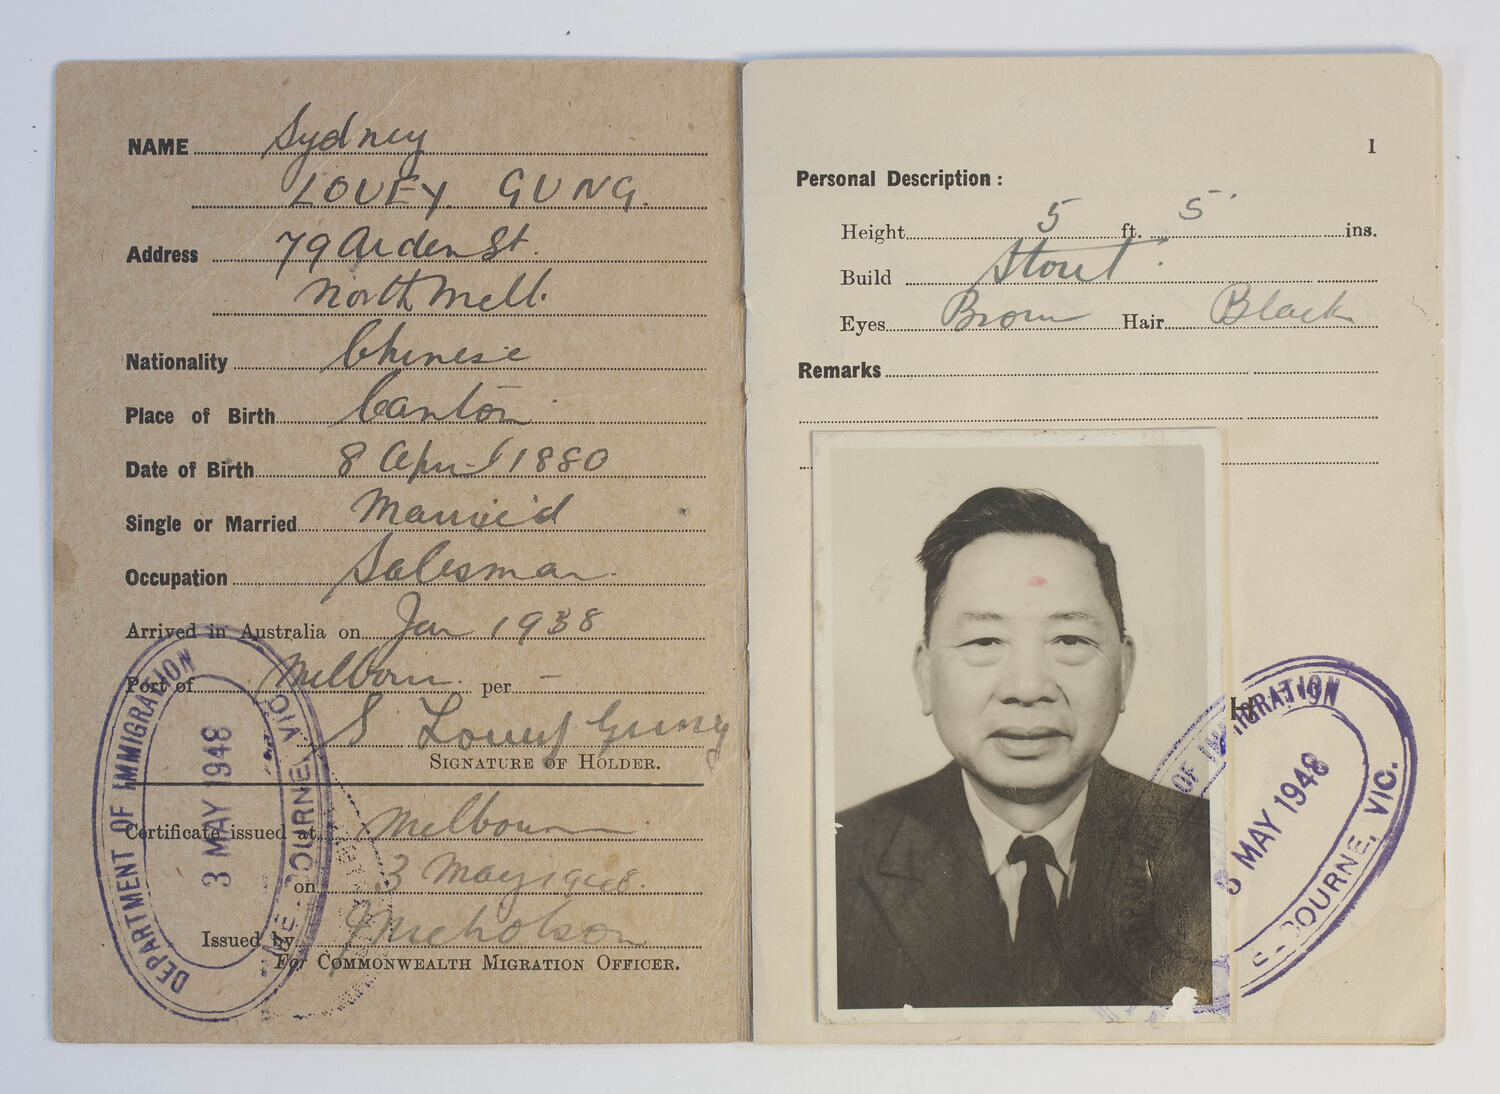 NAME Sydney
LOUEY GUNG.
Address 79 Arden St.
North Melb.
Nationality Chinese
Place of Birth Canton
Date of Birth 8 April 1880
Single or Married Married
Occupation Salesman.
Arrived in Australia on Jan 1938
Port of Melbourne per -
S Louey Gung
SIGNATURE OF HOLDER.
Certificate issued at Melbourne
on 3 May 1948.
Issued by Nicholson
For COMMONWEALTH MIGRATION OFFICER.
DEPARTMENT OF IMMIGRATION
3 MAY 1948
MELBOURNE, VIC.
1
Personal Description:
Height 5 ft. 5 ins.
Build Stout.
Eyes Brown Hair Black
Remarks
OF IMMIGRATION
3 MAY 1948
BOURNE, VIC.